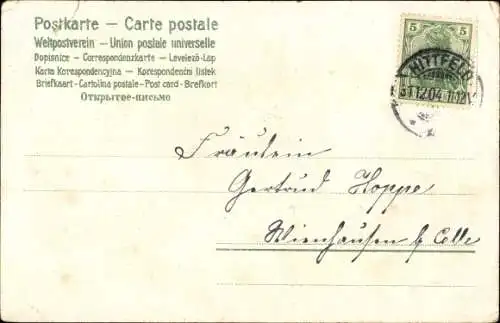 Postkarte – Carte postale
Weltpostverein – Union postale universelle
Dopisnice – Correspondenzkarte – Levelező-Lap
Karta Korespondencyjna – Korespondenčni listek
Briefkaart – Cartolina postale – Post card – Brefkort
Открытое-письмо
5 5
HITTFELD
31.12.04. 11-12V
Fräulein
Gertrud Hoppe
Wienhausen b Celle